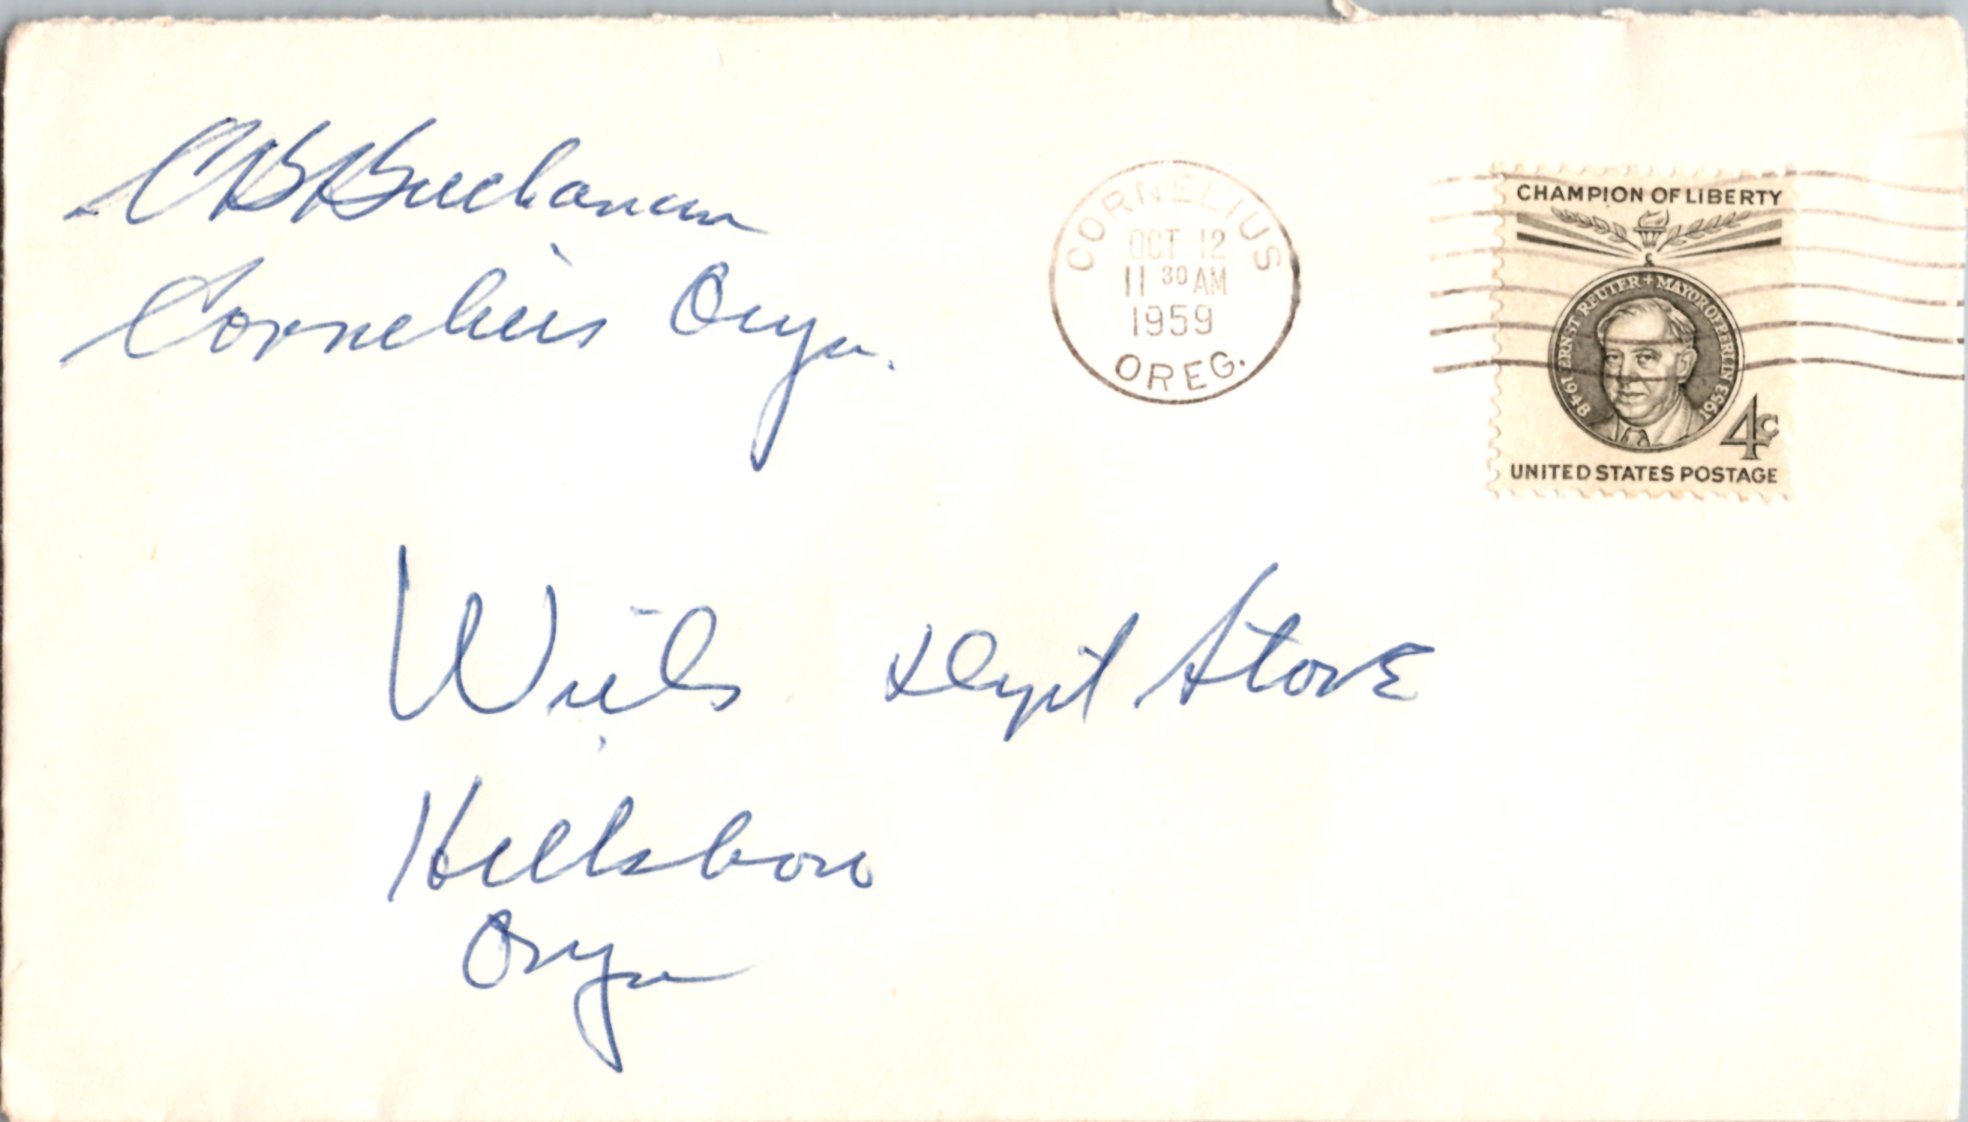 C B Buchanan
Cornelius Oregon.
CORNELIUS
OCT 12
11 30 AM
1959
OREG.
CHAMPION OF LIBERTY
1948 ERNST REUTER + MAYOR OF BERLIN 1953
4c
UNITED STATES POSTAGE
Weils Dept Store
Hillsboro
Oregon